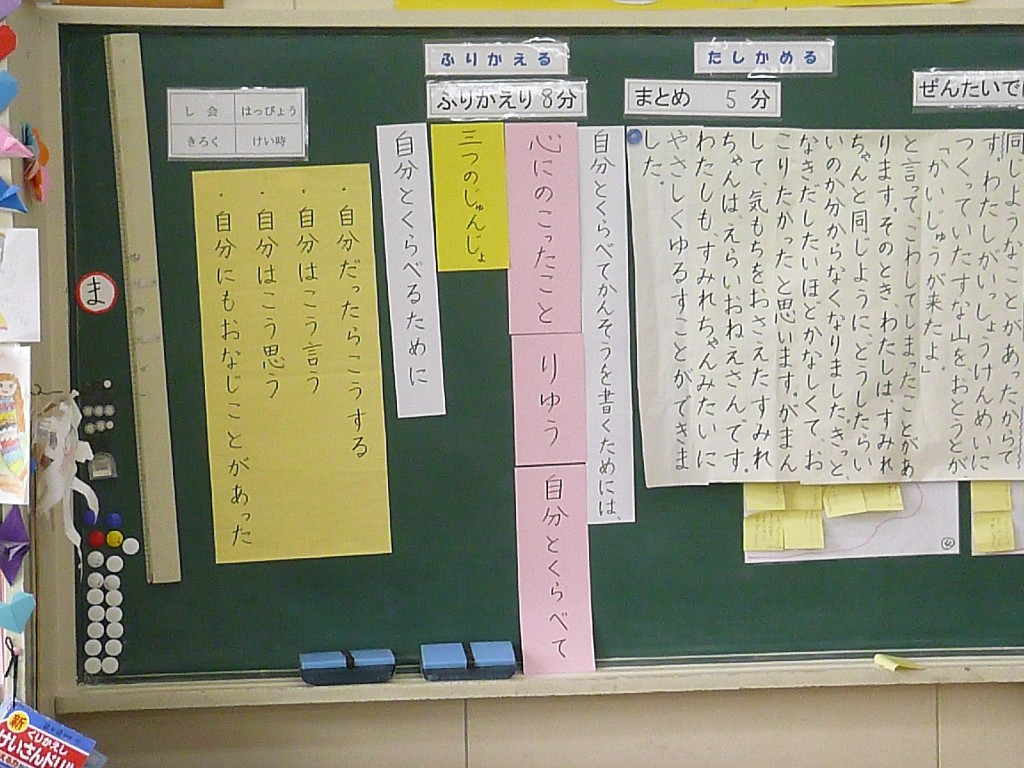 ふりかえる
たしかめる
ふりかえり 8分
まとめ 5分
ぜんたいで
同じようなことがあったからで
す。わたしがいっしょうけんめいに
つくっていたすな山をおとうとが
「かいじゅうが来たよ。」
と言って、こわしてしまったことがあ
ります。そのとき、わたしは、すみれ
ちゃんと同じように、どうしたらい
いのか分からなくなりました。きっと、
なきだしたいほどかなしくて、お
こりたかったと思います。がまん
して、気もちをおさえたすみれ
ちゃんは、えらいおねえさんです。
わたしも、すみれちゃんみたいに
やさしくゆるすことができま
した。
自分とくらべてかんそうを書くためには、
心にのこったこと
りゆう
自分とくらべて
三つのじゅんじょ
自分とくらべるために
・自分だったらこうする
・自分はこう言う
・自分はこう思う
・自分にもおなじことがあった
し会
はっぴょう
きろく
けい時
ま
新
くりかえし
けいさんドリ